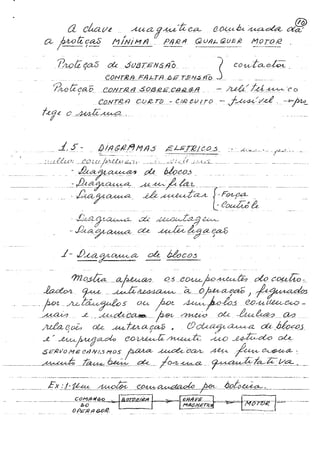 10
A chave magnética combinada dá
a proteção MÍNIMA PARA QUALQUER MOTOR.
Proteção de SUBTENSÃO } contactor
CONTRA FALTA DE TENSÃO
Proteção CONTRA SOBRECARGA - relé térmico
CONTRA CURTO-CIRCUITO - fusível
tege o sistema.
1.5- DIAGRAMAS ELÉTRICOS
- Diagrama de blocos
- Diagrama unifilar
- Diagrama elementar { -Força
-Controle
- Diagrama de montagem
- Diagrama de interligação
1- Diagrama de blocos
Mostra apenas os componentes do contro-
lador que interessam à operação, figurados
por retângulos ou por símbolos convencio-
nais e indicam por meio de linhas as
relações de interação. O diagrama de blocos
é empregado correntemente no estudo de
SERVOMECANISMOS para indicar seu funciona-
mento também de forma quantitativa.
Ex:1-Um motor comandado por botoeira.
COMANDO DO OPERADOR
BOTOEIRA
CHAVE MAGNÉTICA
MOTOR